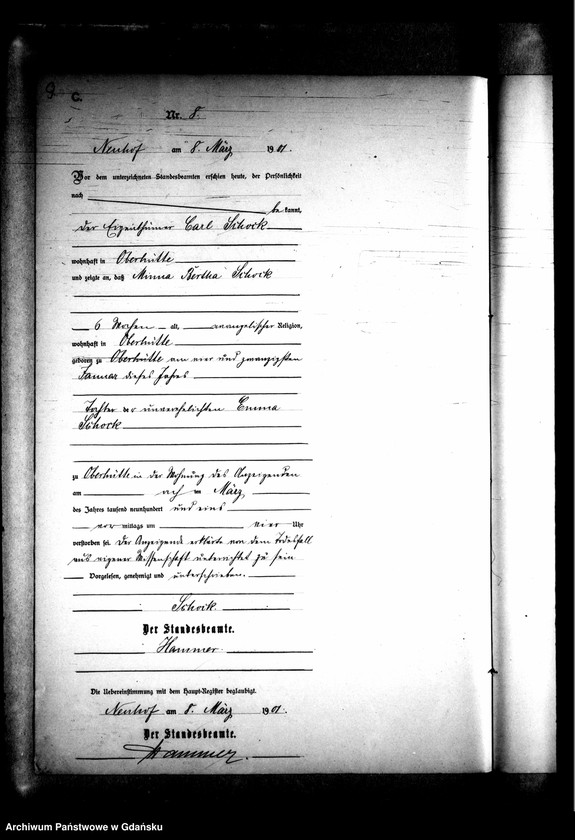 C.
Nr. 8.
Neuhof am 8. März 1901.
Vor dem unterzeichneten Standesbeamten erschien heute, der Persönlichkeit
nach
be kannt,
der Eigenthümer Carl Schock
wohnhaft in Oberhütte
und zeigte an, daß Minna Bertha Schock
6 Wochen alt, evangelischer Religion,
wohnhaft in Oberhütte
geboren zu Oberhütte am vier und zwanzigsten
Januar dieses Jahres
Tochter der unverehelichten Emma
Schock
zu Oberhütte in der Wohnung des Anzeigenden
am acht en März
des Jahres tausend neunhundert und eins
vor mittags um vier Uhr
verstorben sei. Der Anzeigende erklärte von dem Todesfall
aus eigener Wissenschaft unterrichtet zu sein
Vorgelesen, genehmigt und unterschrieben.
Schock.
Der Standesbeamte.
Hammer.
Die Uebereinstimmung mit dem Haupt-Register beglaubigt.
Neuhof am 8. März 1901.
Der Standesbeamte.
Hammer.
Archiwum Państwowe w Gdańsku